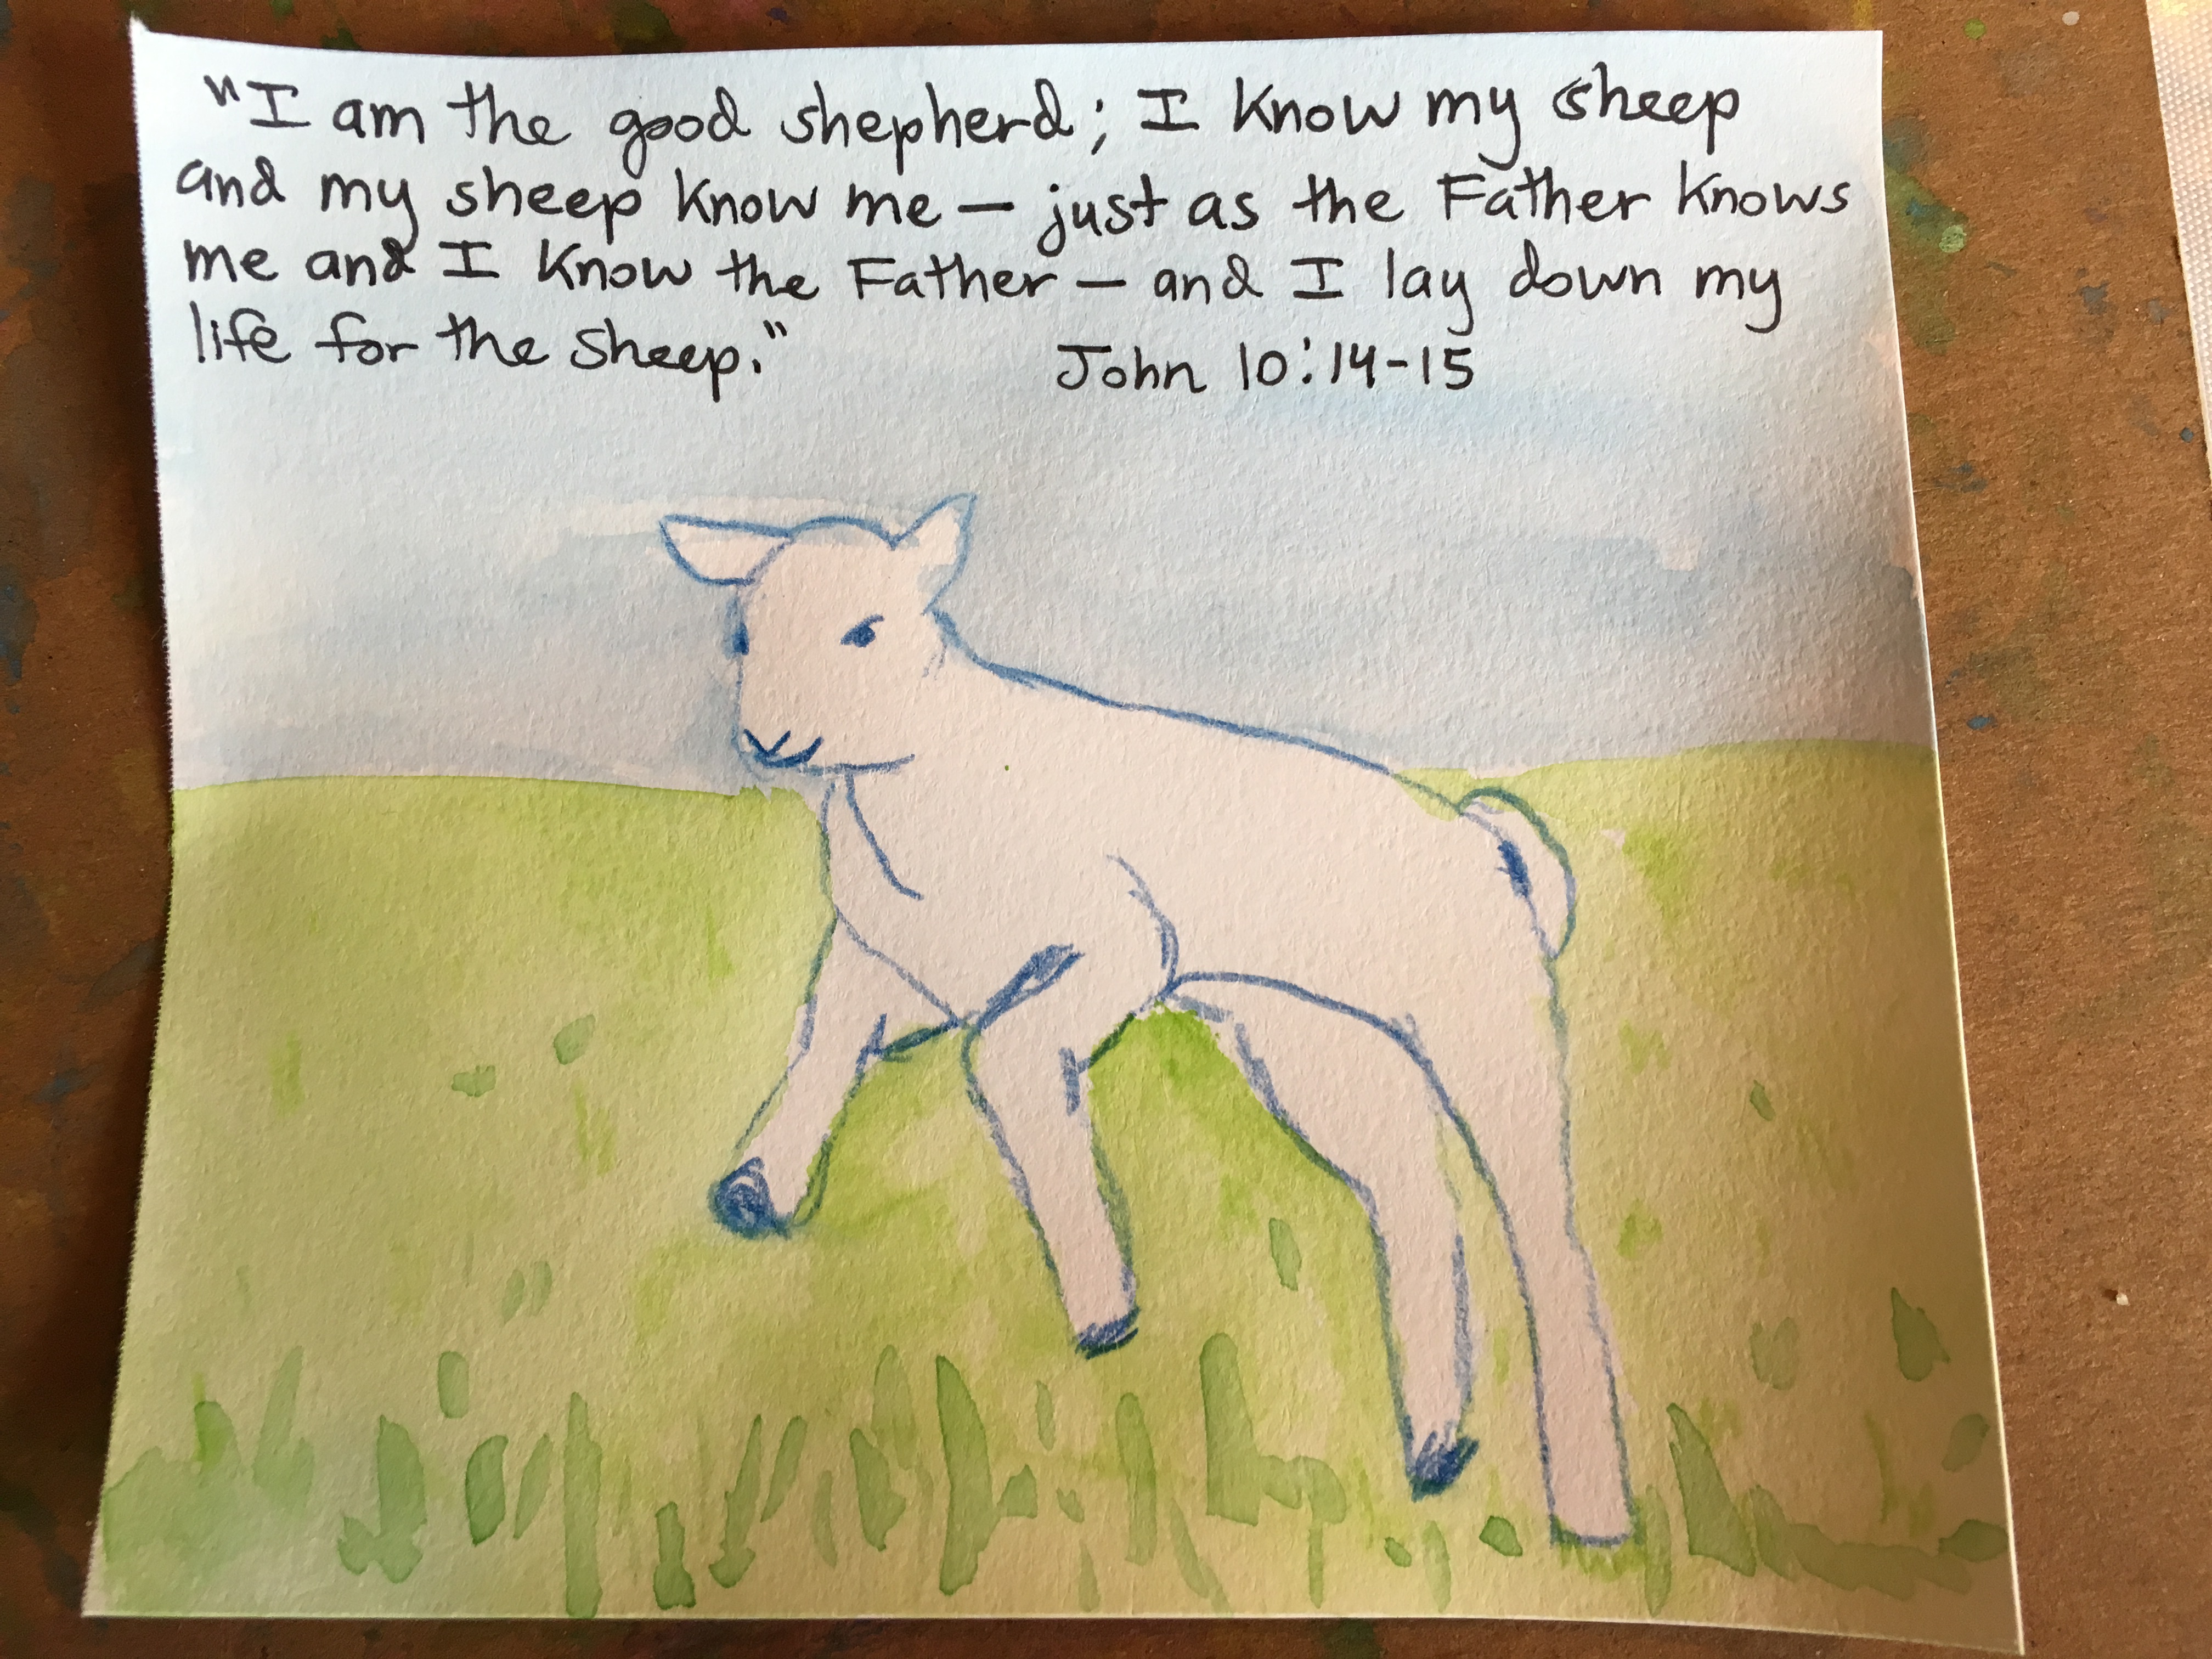 "I am the good shepherd; I know my sheep
and my sheep know me – just as the Father knows
me and I know the Father – and I lay down my
life for the sheep."
John 10:14-15